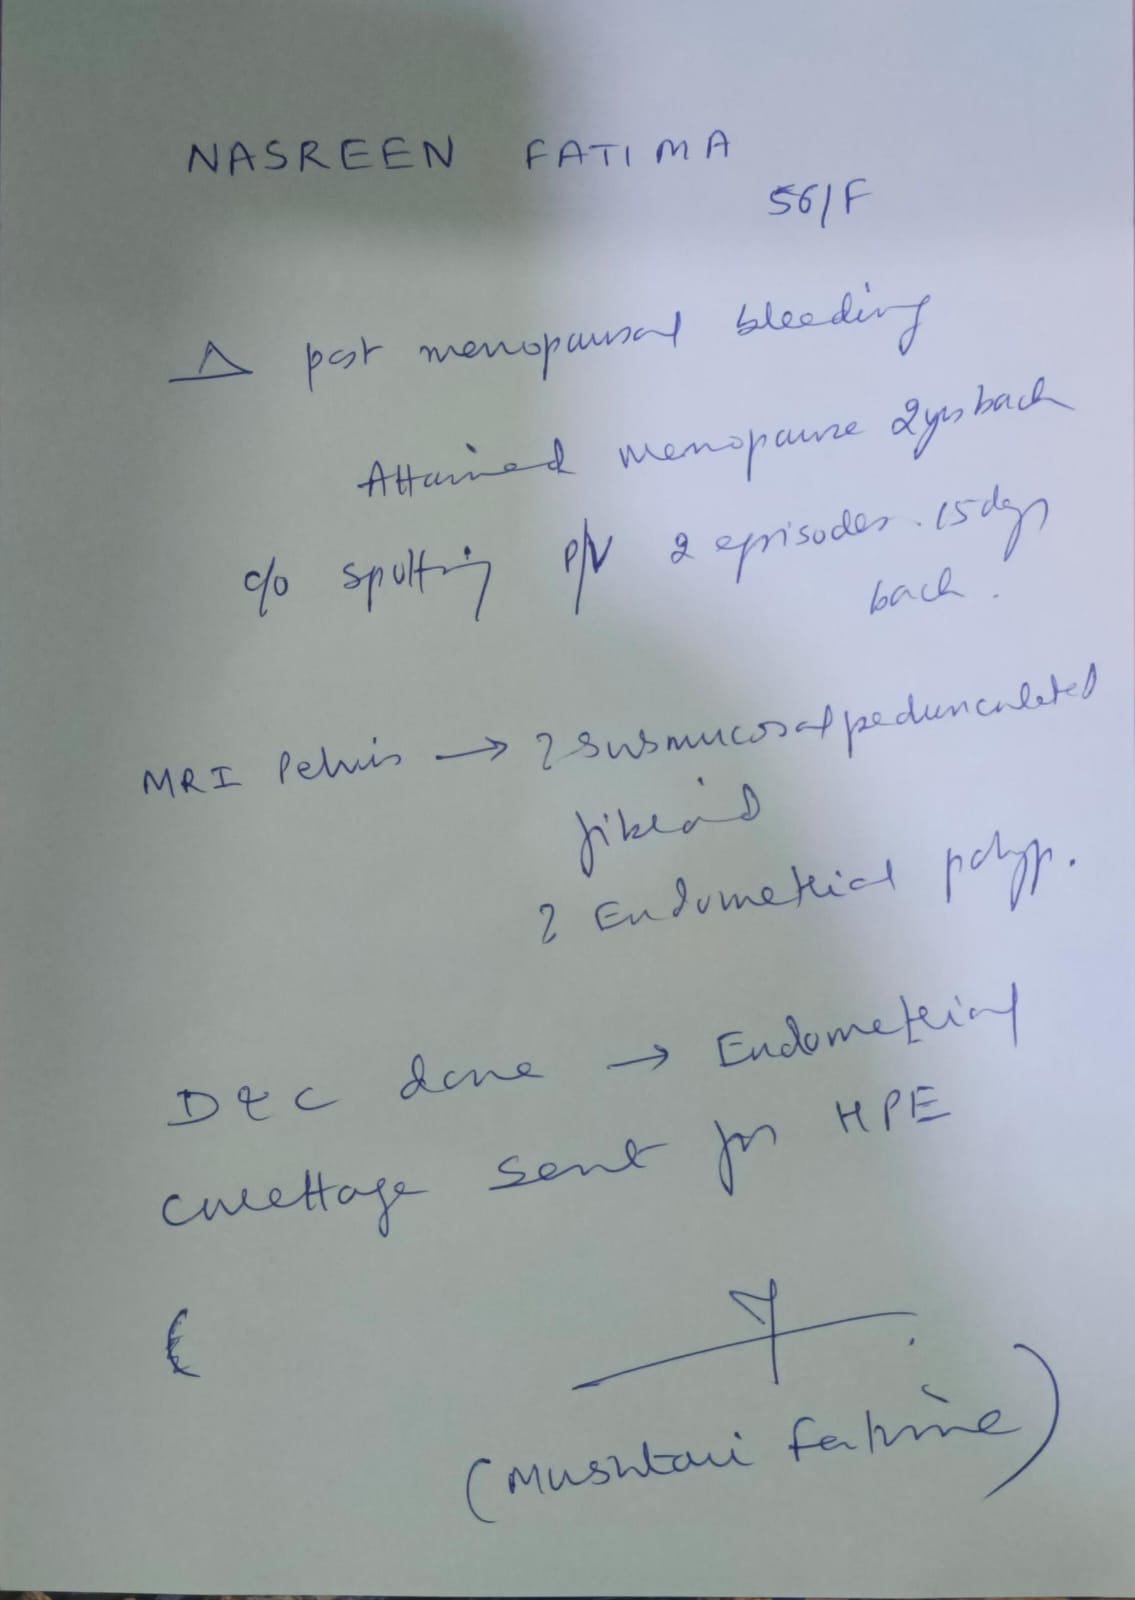 NASREEN FATIMA
56/F
Δ post menopausal bleeding
Attained menopause 2yrs back
c/o spotting P/V 2 episodes. 15 days
back.
MRI Pelvis → ? submucosal pedunculated
fibroid
? Endometrial polyp.
D & C done → Endometrial
curettage sent for HPE
(Mushtari Fatima)